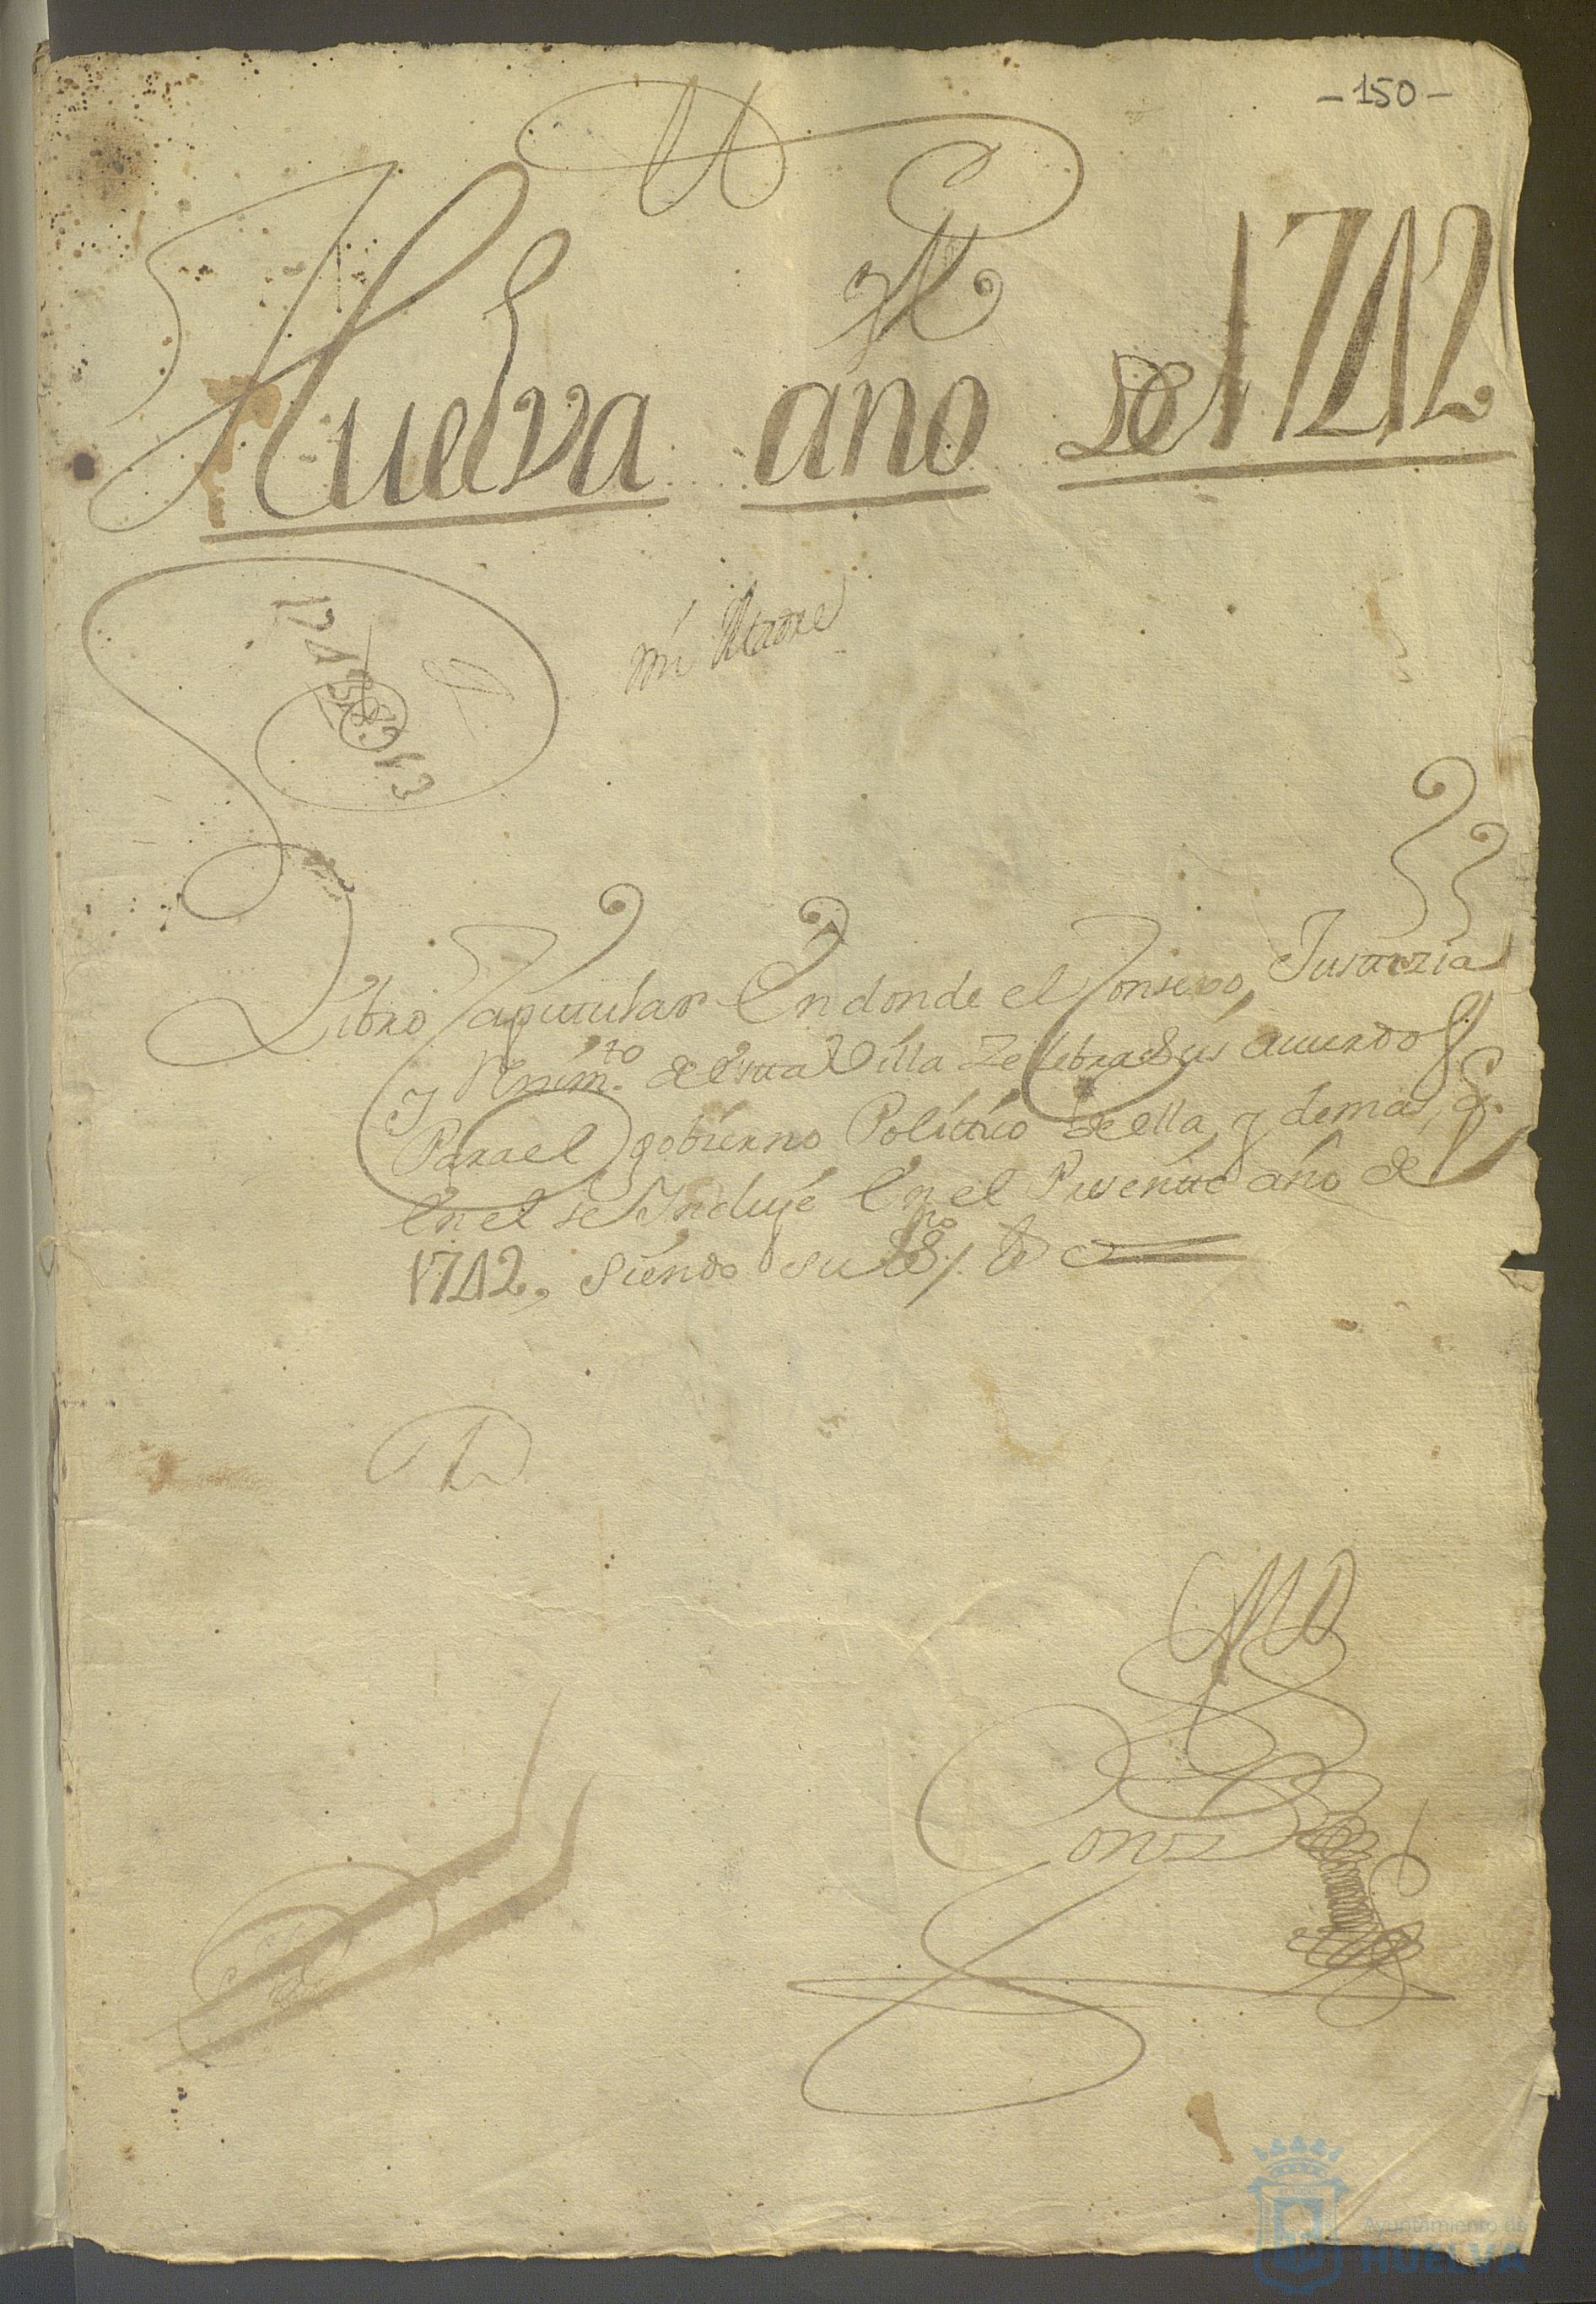 -150-
M
Huelva año de 1742
mi Madre
1742
43
Libro Capitular En donde el Consexo, Justizia
y Reximto de esta Villa Zelebra sus acuerdos
Para el gobierno Politico de ella, y demas, q.
en el se Incluye En el Presente año de
1742, siendo su SSno
Ayuntamiento de
HUELVA